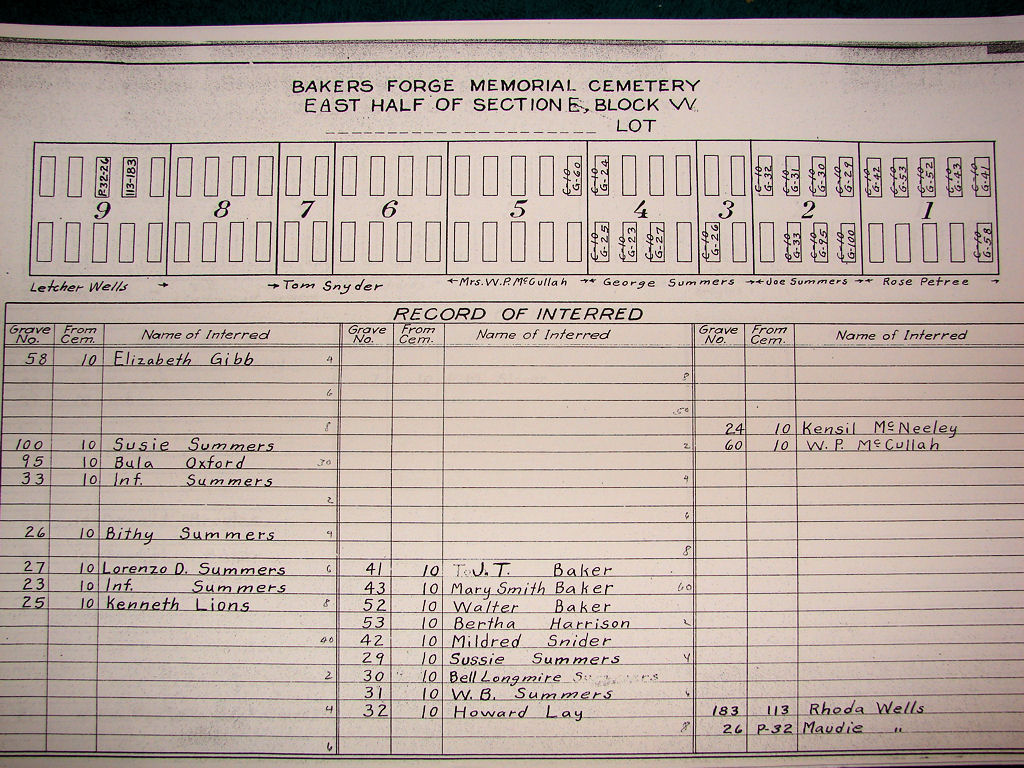 BAKERS FORGE MEMORIAL CEMETERY
EAST HALF OF SECTION E, BLOCK W
LOT
P.32-26 113-183 C-10 G-60 C-10 G-24 C-10 G-32 C-10 G-31 C-10 G-30 C-10 G-29 C-10 G-42 C-10 G-53 C-10 G-52 C-10 G-43 C-10 G-41
9 8 7 6 5 4 3 2 1
C-10 G-25 C-10 G-23 C-10 G-27 C-10 G-26 C-10 G-33 C-10 G-95 C-10 G-100 C-10 G-58
Letcher Wells → → Tom Snyder ← Mrs. W.P. McCullah → ← George Summers → ← Joe Summers → ← Rose Petree →
RECORD OF INTERRED
Grave No. From Cem. Name of Interred Grave No. From Cem. Name of Interred Grave No. From Cem. Name of Interred
58 10 Elizabeth Gibb 4
8
6
50
8 24 10 Kensil McNeeley
100 10 Susie Summers 2 60 10 W. P. McCullah
95 10 Bula Oxford 30
33 10 Inf. Summers 4
2
6
26 10 Bithy Summers 4
8
27 10 Lorenzo D. Summers 6 41 10 J. T. Baker
23 10 Inf. Summers 43 10 Mary Smith Baker 60
25 10 Kenneth Lions 8 52 10 Walter Baker
53 10 Bertha Harrison 2
40 42 10 Mildred Snider
29 10 Sussie Summers 4
2 30 10 Bell Longmire
31 10 W. B. Summers 6
4 32 10 Howard Lay 183 113 Rhoda Wells
8 26 P-32 Maudie "
6